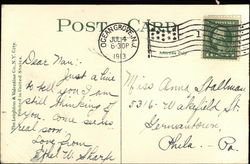 POST CARD
OCEAN GROVE, N.J.
JUL 14
6-30P
1913
Dear Nan:-
Just a line
to tell you I am
still thinking of
you. Come
real soon.
Love from
Ethel W. Sharp
Miss Anna Stallman
5316-Wakefield St.
Germantown,
Phila.- Pa.